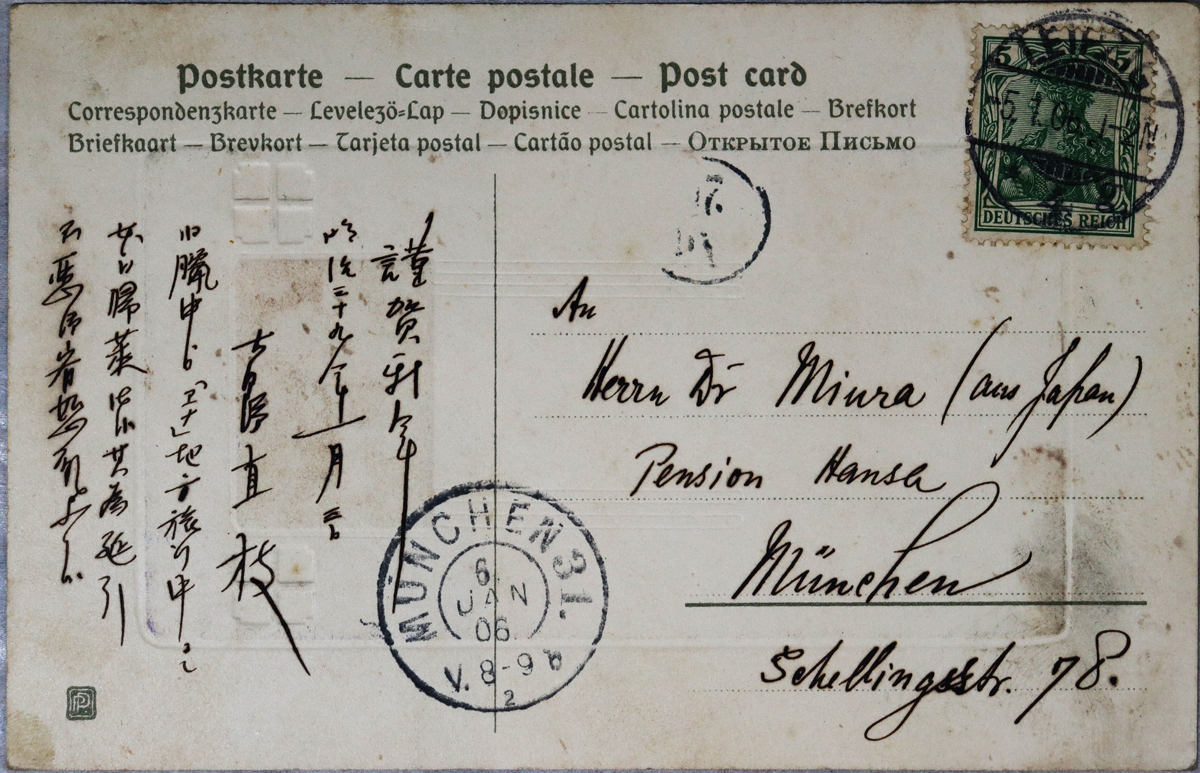 Postkarte — Carte postale — Post card
Correspondenzkarte — Levelezö-Lap — Dopisnice — Cartolina postale — Brefkort
Briefkaart — Brevkort — Tarjeta postal — Cartão postal — Открытое Письмо
5 5
DEUTSCHES REICH
謹賀新年
明治三十九年一月三日
直枝
旧臘中ハ「ヱナ」地方旅行中ニ
其為延引
An
Herrn Dr Miura (aus Japan)
Pension Hansa
München
Schellingstr. 78.
MÜNCHEN 31.
6.
JAN
06
V. 8-9
2